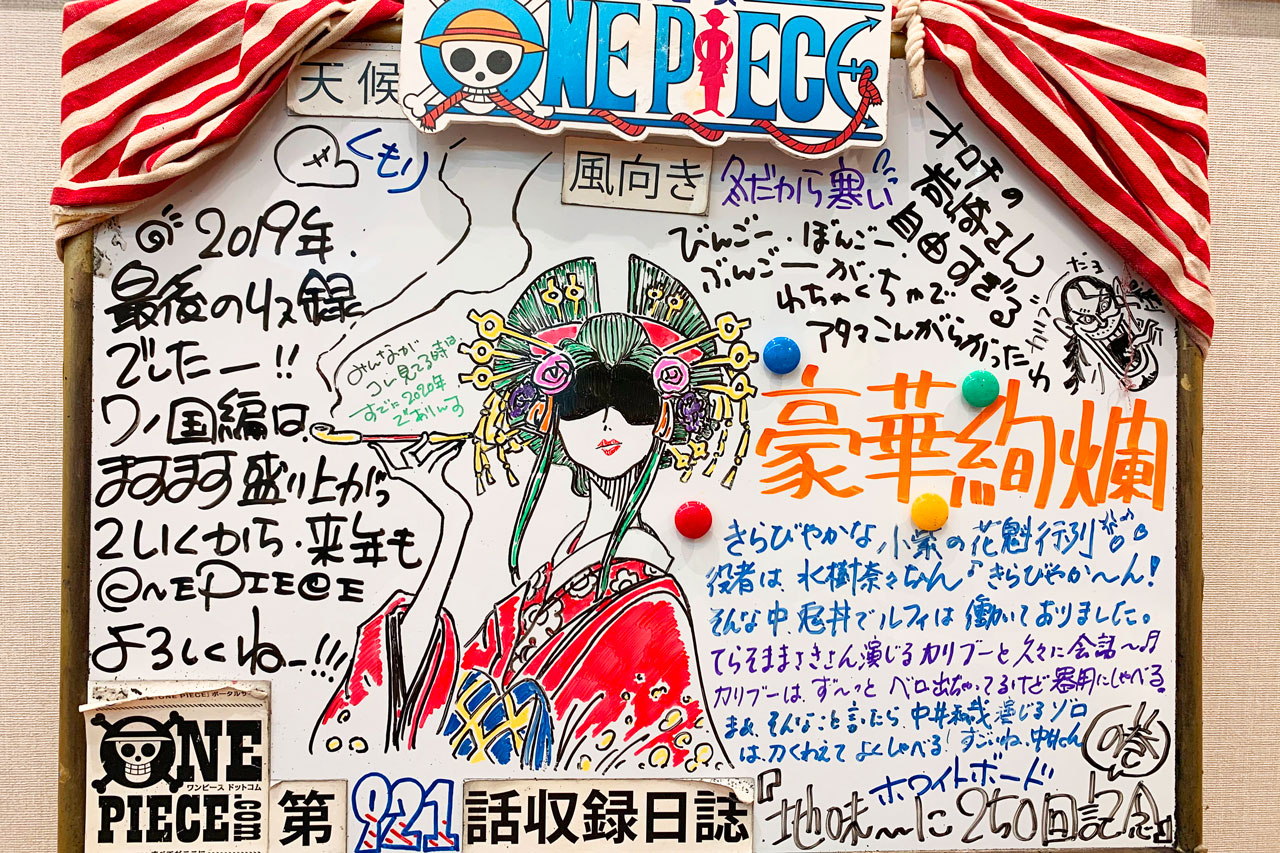 ONE PIECE
天候
くもり
風向き
冬だから寒い
2019年.
最後のリス録
でしたー!!
ワノ国編は、
ますます盛り上がっ
ていくから、来年も
@NEPIE@E
よろしくねー!!!
みんなが
コレ見てる時は
すでに2020年
でありんす
オロチの
岩崎さん
自由すぎる
びんごー・ぼんごー
ぶんごーが、
わちゃくちゃで
アタマこんがらがったわ
豪華絢爛
きらびやかな、小紫の花魁行列♪
役者は、水樹奈々ちゃん♪きらびやか〜ん!
そんな中、兎丼でルフィは働いておりました。
てらそままさきさん演じるカリブーと久々に会話〜♬
カリブーは、ず〜っとベロ出ちゃってるけど器用にしゃべる。
まぁ、そんなこと言ったら、中井和哉演じるゾロ
は、刀くわえてよくしゃべる!すごいね、中井さん
ONE
ワンピース ドットコム
PIECE.com
第921話収録日誌
『地味〜にホワイトボード250回記念』
の巻